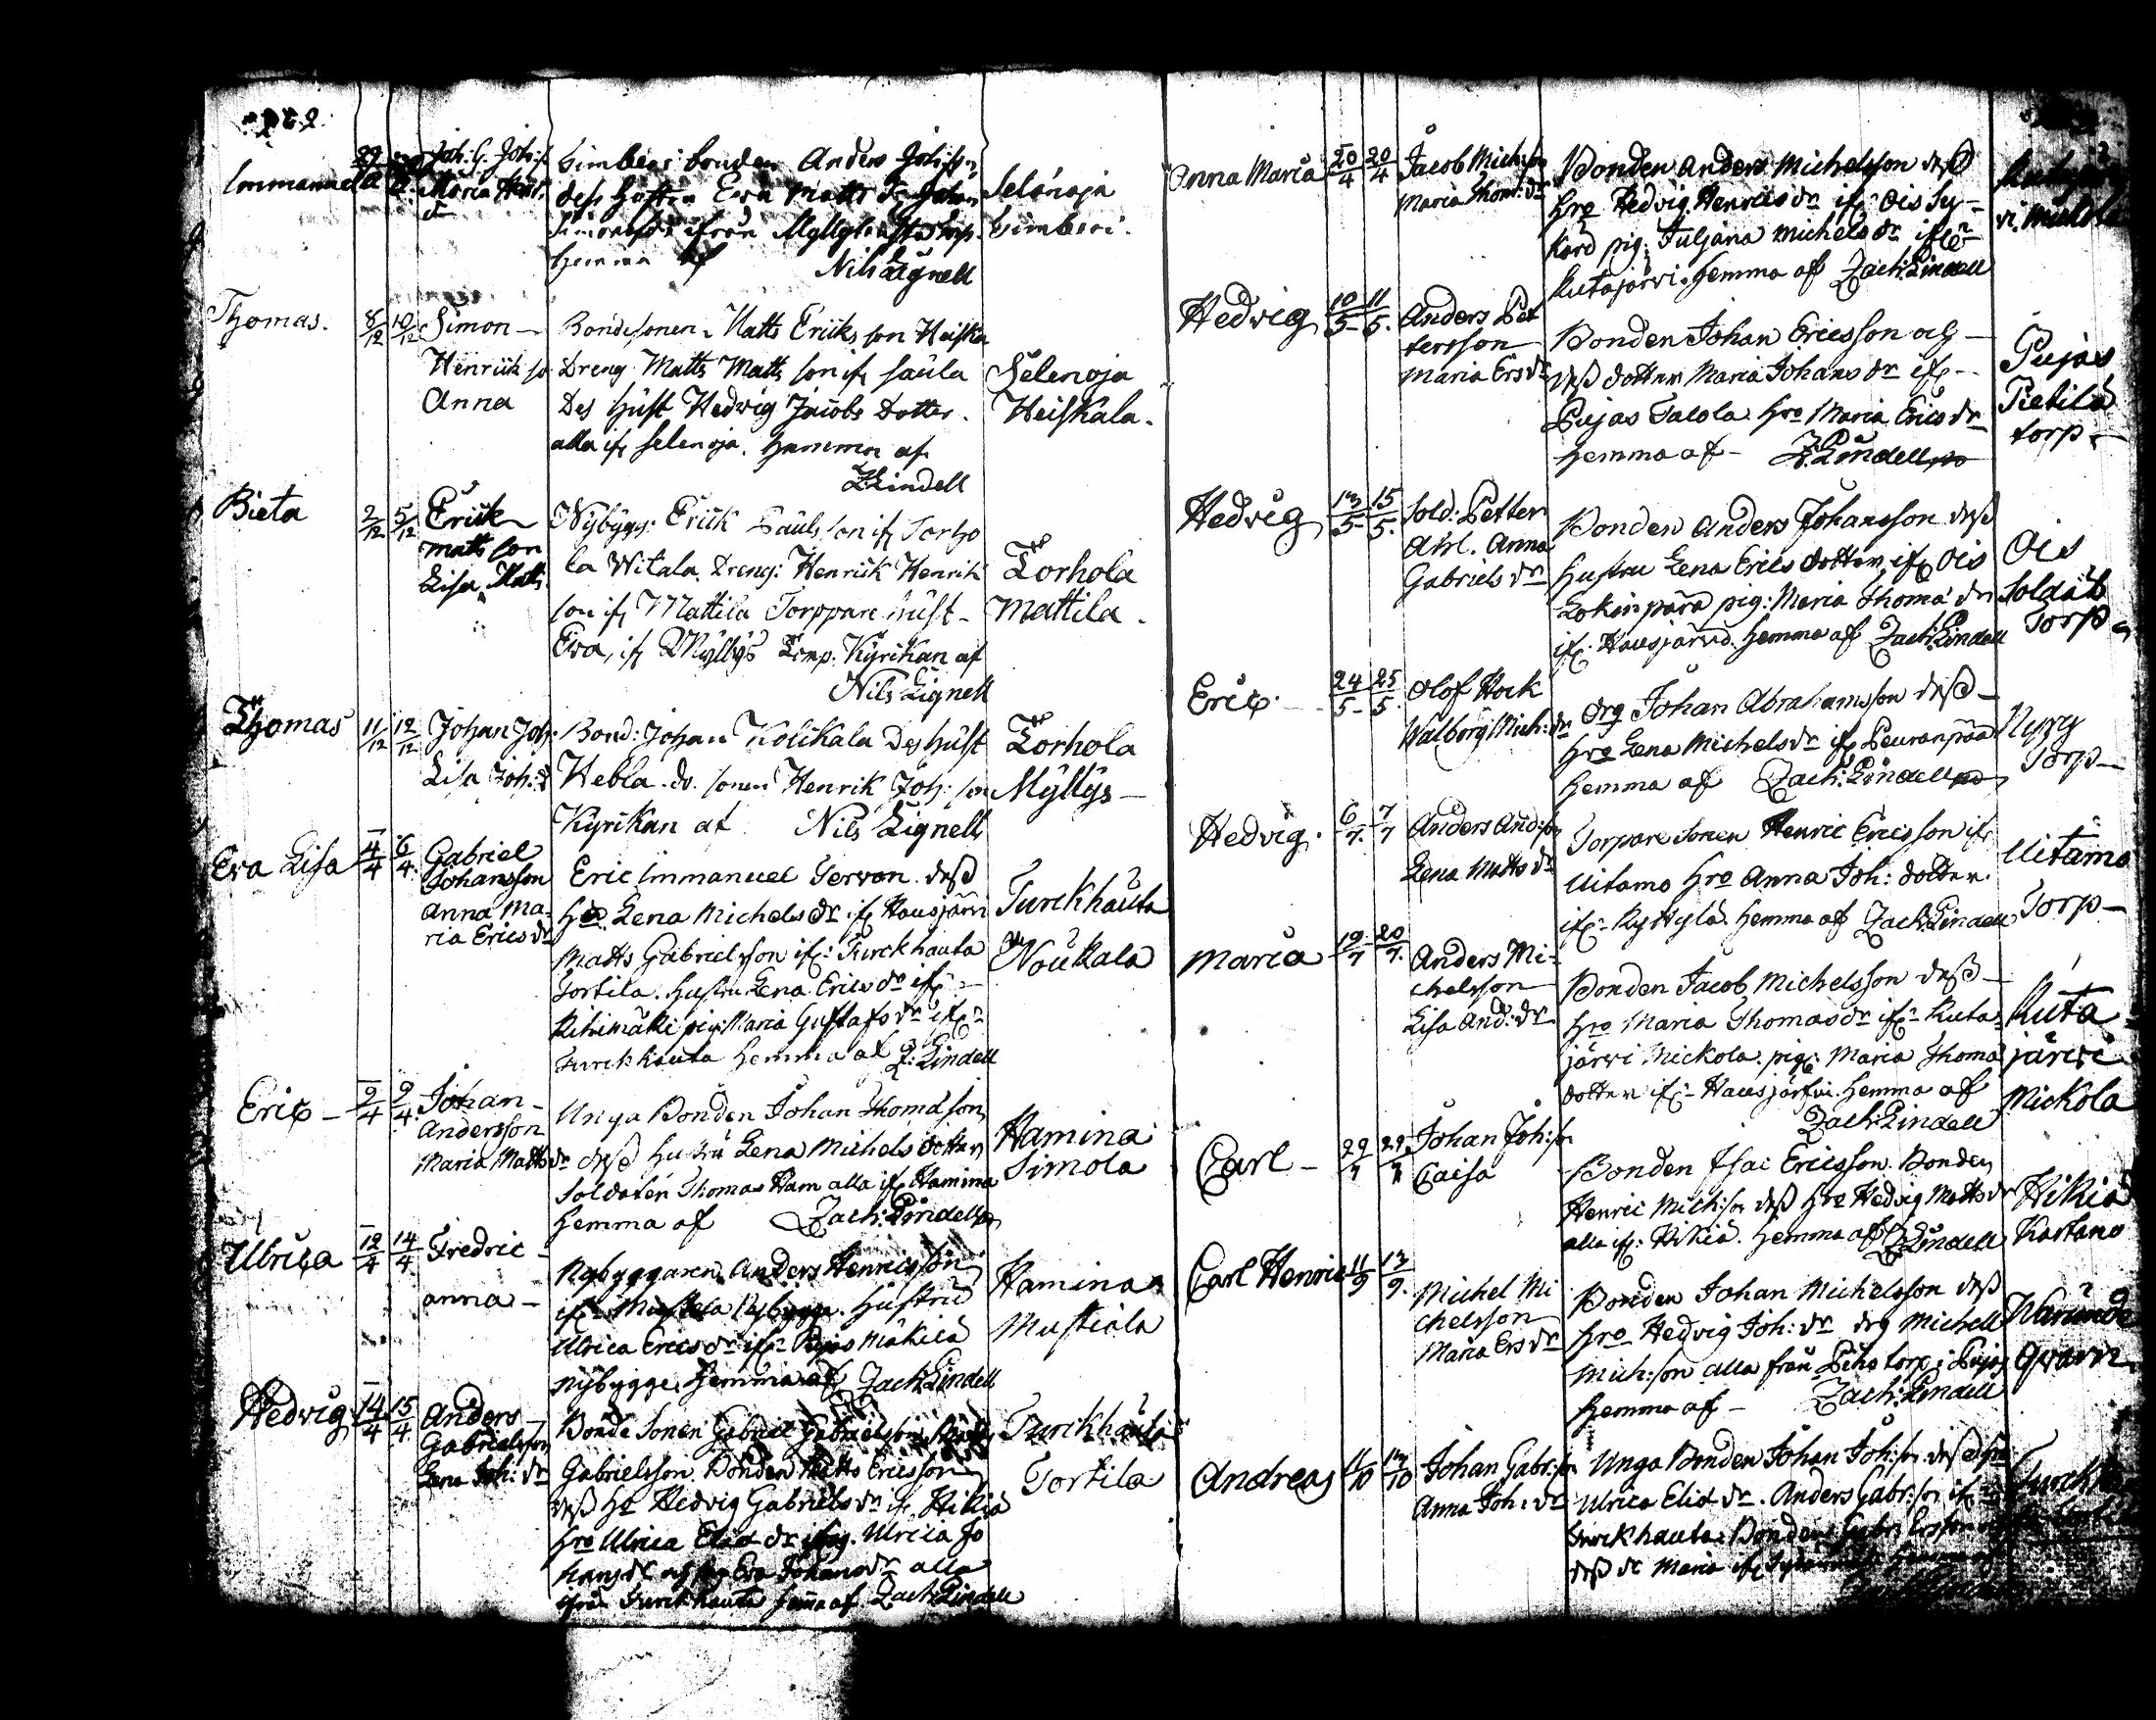 Immanuel
29
Joh: G. Joh:s
Maria Henr:
dr
Simberi bonden Anders Joh:son
dess hustru Eva Matts dr Johan
Simonsson ifrån Myllykosta Torp.
Hemma af Nils Lignell
Selånoja
Simberi.
Thomas.
8/12 10/12
Simon
Henrik so
Anna
Bondesonen Matts Eriks son Heiska
Dreng Matts Matts son ifr Saula
Des Hust Hedvig Jacobs Dotter.
alla ifr Selenoja. Hemma af
Z Lindell
Selenoja
Heiskala.
Bieta
2/12 5/12
Erik
Matts son
Lisa Matts
Nybygg: Erik Pauls son ifr Torho
la Witala. Dreng: Henrik Henrik
son ifr Mattila Torppare hust
Eva, ifr Myllys Torp. Kyrikan af
Nils Lignell
Torhola
Mattila.
Thomas
11/12 12/12
Johan Joh:
Lisa Joh: d
Bond: Johan Kolikala Des hust
Hebla. do. sonen Henrik Joh: son
Kyrikan af Nils Lignell
Torhola
Myllys
Eva Lisa
4/4 6/4
Gabriel
Johansson
Anna Ma-
ria Erics dr
Eric Immanuel Tervon. dess
Hro Lena Michels dr ifr Hausjärvi
Matts Gabrielsson ifr Turckhauta
Tortila. Hustru Lena Erics dr ifr
Rihimäki pig: Maria Gustafs dr ifr
Turckhauta Hemma af Z: Lindell
Turckhauta
Noukala
Eric
9/4 9/4
Johan
Andersson
Maria Matts dr
Unga Bonden Johan Thomasson
dess hustru Lena Michels dotter
Soldaten Thomas Ham alla ifr Hamina
Hemma af Zach: Lindell
Hamina
Simola
Ulrica
12/4 14/4
Fredric
anna
Nybyggaren Anders Henricsson
ifr Mustiala Nybygge. Hustru
Ulrica Erics dr ifr Pujas Mäkilä
nybygge. Hemma af Zach: Lindell
Hamina
Mustiala
Hedvig
14/4 15/4
Anders
Gabrielsson
Lena Joh: dr
Bonde Sonen Gabriel Gabrielsson
Gabrielsson. Bonden Matts Ericsson
dess Hr Hedvig Gabriels dr ifr Hikiä
Hro Ulrica Elia dr pig. Ulrica Jo
hans dr och pig Eva Johans dr alla
ifrån Turckhauta hemma af Zach: Lindell
Turckhauta
Tortila
Anna Maria
20/4 20/4
Jacob Mich:son
Maria Thom: dr
Bonden Anders Michelsson dess
Hro Hedvig Henrics dr ifr Ois Sy-
kärö pig: Juljana Michels dr ifr
Kutajärvi. Hemma af Zach: Lindell
Hedvig
10/5 11/5.
Anders Pet
tersson
Maria Ers dr
Bonden Johan Ericsson och
dess dotter Maria Johans dr ifr
Pujas Talola. Hro Maria Erics dr
Hemma af Z. Lindell
Pujas
Pietilä
torp
Hedvig
13/5 15/5.
Sold: Petter
Ahl. Anna
Gabriels dr
Bonden Anders Johansson dess
hustru Lena Erics dotter ifr Ois
Lokinpärä pig: Maria Thoma dr
ifr Hausjärvi. Hemma af Zach: Lindell
Ois
Soldats
Torp
Eric
24/5 25/5
Olof Hock
Walborg Mich: dr
Drg Johan Abrahamsson dess
Hro Lena Michels dr ifr Peuranpää
Hemma af Zach: Lindell
Nyry
Torp
Hedvig.
6/7. 7/7
Anders And:son
Lena Matts dr
Torpare Sonen Henric Ericsson ifr
Uitamo Hro Anna Joh: dotter.
ifr Ryttylä. Hemma af Zach: Lindell
Uitamo
Torp
Maria
19/7 20/7.
Anders Mi-
chelsson
Lisa And: dr
Bonden Jacob Michelsson dess
Hro Maria Thomas dr ifr Kuta-
järvi Mickola. pig: Maria Thoma
dotter ifr Hausjärfvi. Hemma af
Zach: Lindell
Kuta
järvi
Mickola
Carl
29/7 29/7
Johan Joh:son
Caisa
Bonden Isac Ericsson. Bonden
Henric Mich:son dess Hro Hedvig Matts dr
alla ifr Hikiä. Hemma af Z Lindell
Hikiä
Kartano
Carl Henric
11/9 13/9.
Michel Mi
chelsson
Maria Ers dr
Bonden Johan Michelsson dess
Hro Hedvig Joh: dr drg Michell
Mich:son alla från torp i Pujas
Hemma af Zach: Lindell
qvarn
Andreas
11/10 13/10
Johan Gabr:son
Anna Joh: dr
Unga Bonden Johan Joh:son dess Hro
Ulrica Elia dr. Anders Gabr:son ifr
Turckhauta. Bonden Gabr: Ersson
dess dr Maria ifr